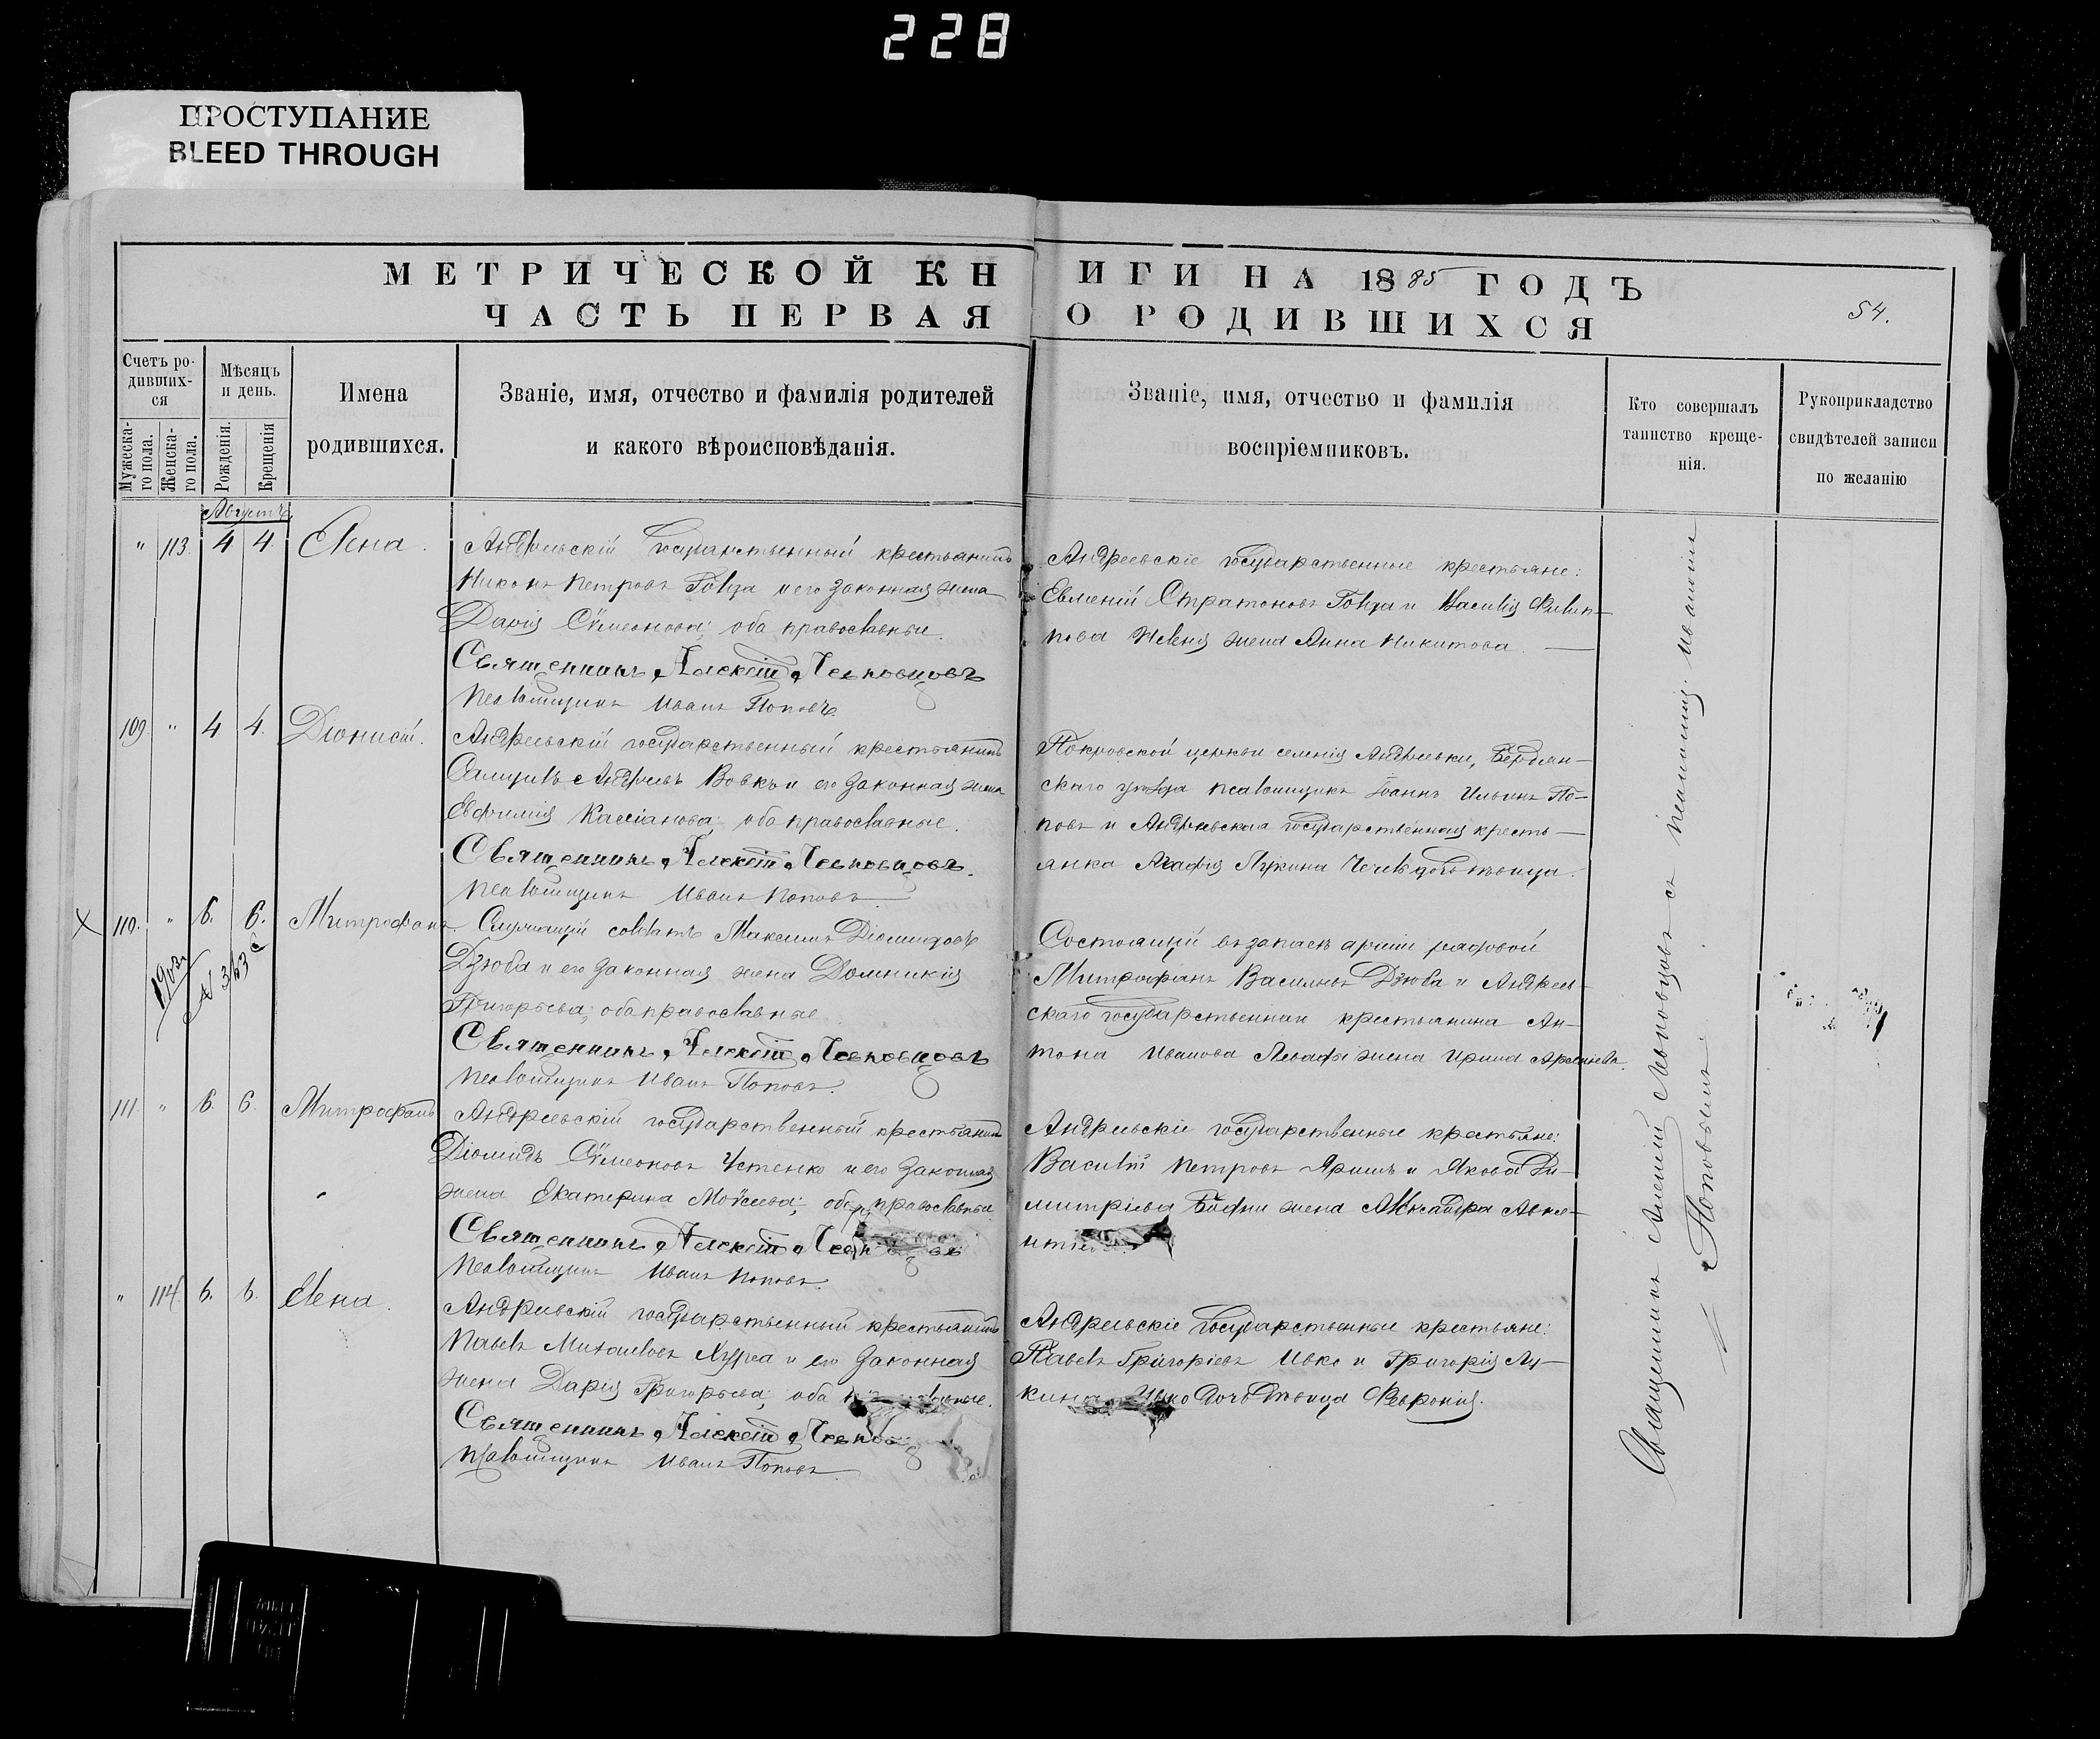 228
ПРОСТУПАНИЕ
BLEED THROUGH
МЕТРИЧЕСКОЙ КНИГИ НА 1885 ГОДЪ
ЧАСТЬ ПЕРВАЯ О РОДИВШИХСЯ
54.
Счетъ ро-
дивших-
ся
Мужеска-
го пола.
Женска-
го пола.
Мѣсяцъ
и день.
Рожденія.
Крещенія
Имена
родившихся.
Званіе, имя, отчество и фамилія родителей
и какого вѣроисповѣданія.
Званіе, имя, отчество и фамилія
воспріемниковъ.
Кто совершалъ
таинство креще-
нія.
Рукоприкладство
свидѣтелей записи
по желанію
Августъ
" 113. 4 4. Елена.
Андреевскій государственный крестьянинъ
Никонъ Петровъ и его законная жена
Дарія Сѵмеонова; оба православные.
Священникъ Алексій Леоновцовъ
Псаломщикъ Иванъ Поповъ.
Андреевскіе государственные крестьяне:
Евменій Стратоновъ и Василія Филип-
пова жена Анна Никитова.
109. " 4 4. Діонисій.
Андреевскій государственный крестьянинъ
Самуилъ Андреевъ Вовкъ и его законная жена
Евфимія Кассіанова; оба православные.
Священникъ Алексій Леоновцовъ.
Псаломщикъ Иванъ Поповъ.
Покровской церкви селенія Андреевки, Бердян-
скаго уѣзда псаломщикъ Іоаннъ Ильинъ По-
повъ и Андреевская государственная кресть-
янка Агафія Лукина дѣвица.
X 110. " 6. 6. Митрофанъ.
1903 № 363
Служащій солдатъ Максимъ Діомидовъ
Дзюба и его законная жена Домникія
Григорьева; оба православные
Священникъ Алексій Леоновцовъ
Псаломщикъ Иванъ Поповъ.
Состоящій въ запасѣ арміи рядовой
Митрофанъ Васильевъ Дзюба и Андреев-
скаго государственнаго крестьянина Ан-
тона Иванова жена Ирина Арсеньева.
111. " 6. 6. Митрофанъ
Андреевскій государственный крестьянинъ
Діомидъ Сѵмеоновъ Устенко и его законная
жена Екатерина Моѵсеева; оба православные
Священникъ Алексій
Псаломщикъ Иванъ Поповъ.
Андреевскіе государственные крестьяне:
Василій Петровъ Яришъ и Якова Ди-
митріева жена Александра
" 114. 6. 6. Елена.
Андреевскій государственный крестьянинъ
Павелъ Михаиловъ и его законная
жена Дарія Григорьева; оба православные.
Священникъ Алексій
Псаломщикъ Иванъ Поповъ.
Андреевскіе государственные крестьяне:
Павелъ Григоріевъ Ивко и Григорія Лу-
кина Ивко дочь дѣвица Феврония.
Священникъ Алексій Леоновцовъ съ псаломщ. Иваномъ
Поповымъ.